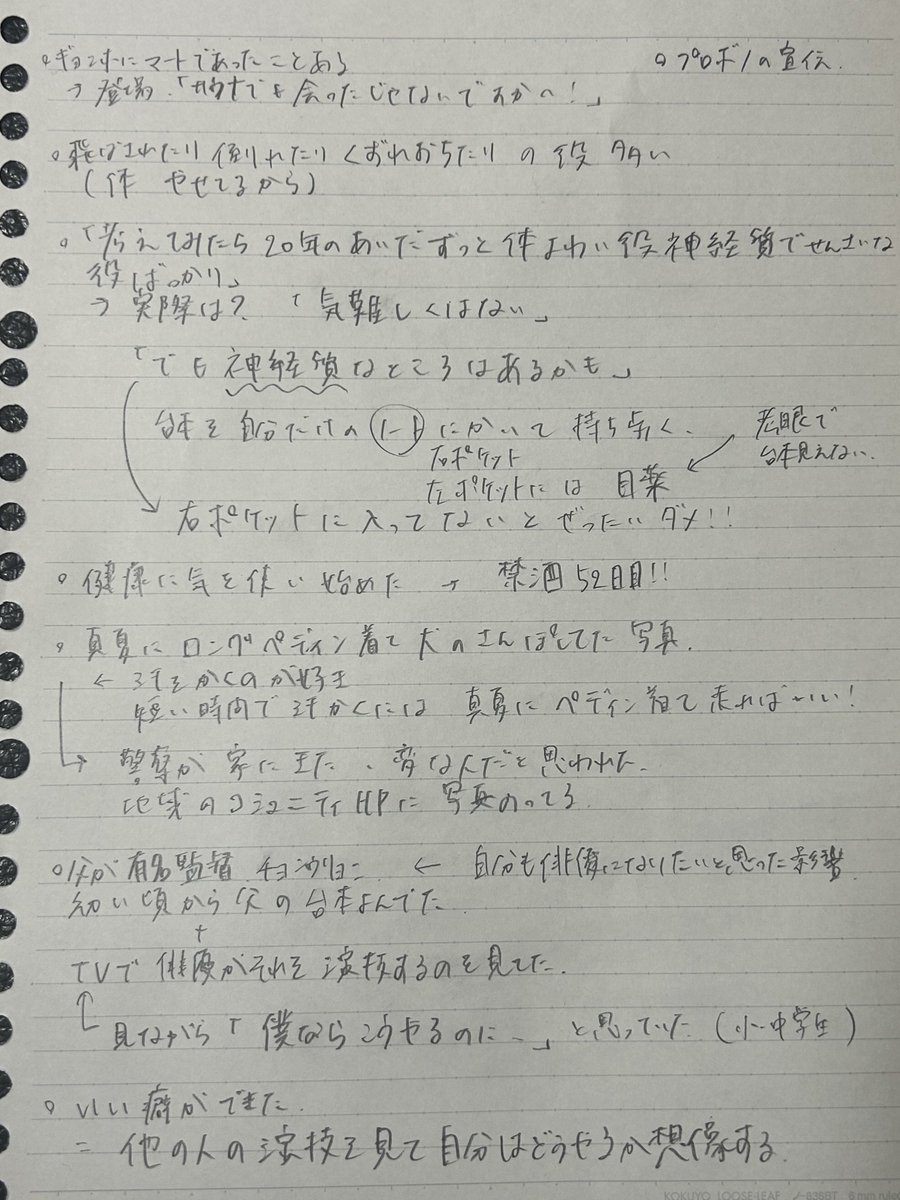 ○ギョンホにマートであったことある
○プロボノの宣伝。
→ 登場「を会ったじゃないですかー!」
○飛ばされたり 倒れたり くずれおちたり の役 多い
(体 やせてるから)
○「考えてみたら 20年のあいだずっと体よわい役神経質でせんさいな
役ばっかり」
→ 実際は?「気難しくはない」
「でも 神経質なところはあるかも」
台本を自分だけのノートにかいて 持ち歩く。
老眼で
台本見えない。
右ポケット
左ポケットには 目薬
右ポケットに入ってないと ぜったい ダメ!!
○ 健康に気を使い始めた → 禁酒52日目!!
○ 真夏に ロングペディン着て 犬のさんぽしてた 写真。
← 汗をかくのが好き
短い時間で 汗かくには 真夏に ペディン着て 走ればーいい!
→ 警察が 家にきた、変な人だと思われた。
地域のコミュニティHPに 写真のってる
○父が有名監督 チョン ← 自分も俳優になりたいと思った影響
幼い頃から父の台本よんでた
+
TVで 俳優がそれを演技するのを見てた。
見ながら「僕ならこうやるのに〜」と思っていた(小・中学生)
○ いい癖ができた。
= 他の人の演技を見て自分はどうやるか想像する。
KOKUYO LOOSE-LEAF